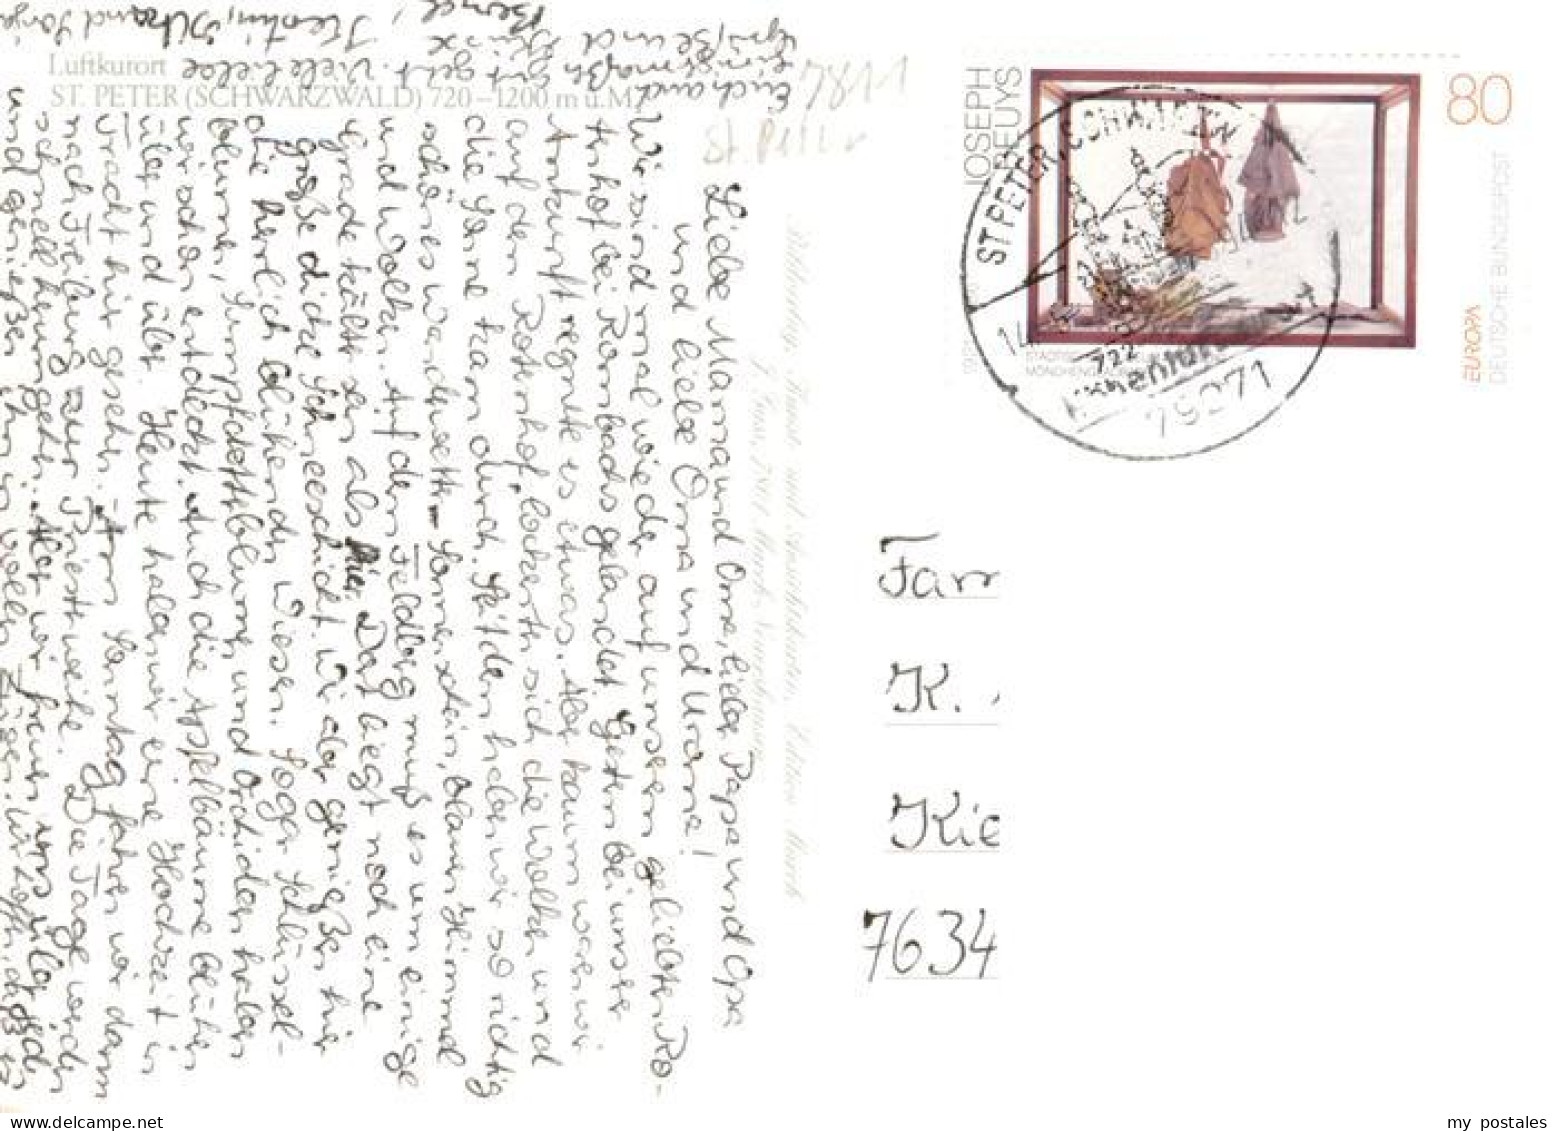 Luftkurort
ST. PETER (SCHWARZWALD) 720–1200 m ü.M.
St. Peter
Liebe Mama und Oma, lieber Papa und Opa
und liebe Oma und Uroma!
Wir sind mal wieder auf unserem geliebten Ro-
tenhof bei Rombachs gelandet. Gestern bei unserer
Ankunft regnete es etwas. Aber kaum waren wir
auf dem Rotenhof, lockerten sich die Wolken und
die Sonne kam durch. Seitdem haben wir so richtig
schönes Wanderwetter – Sonnenschein, blauer Himmel
und Wolken. Auf dem Feldberg muß es um einige
Grade kälter sein als hier. Dort liegt noch eine
große dicke Schneeschicht. Wir aber genießen hier
die herrlich blühenden Wiesen. Sogar Schlüssel-
blumen, Sumpfdotterblumen und Orchideen haben
wir schon entdeckt. Auch die Apfelbäume blühen
über und über. Heute haben wir eine Hochzeit in
Tracht hier gesehen. Am Sonntag fahren wir dann
nach Freiburg zur Priesterweihe. Die Tage werden
schnell herumgehen. Aber wir freuen uns über jeden
und genießen ihn in vollen Zügen. Wir hoffen, daß es
Euch auch
einigermaßen gut geht. Viele liebe
Grüße und
Bernd, Kerstin, und
Bildverlag, Kunst- und Ansichtskarten, Edition March
JOSEPH
BEUYS
80
EUROPA
DEUTSCHE BUNDESPOST
ST PETER, SCHWARZW
722
79271
Fam
K.
Kie
7634
my postales